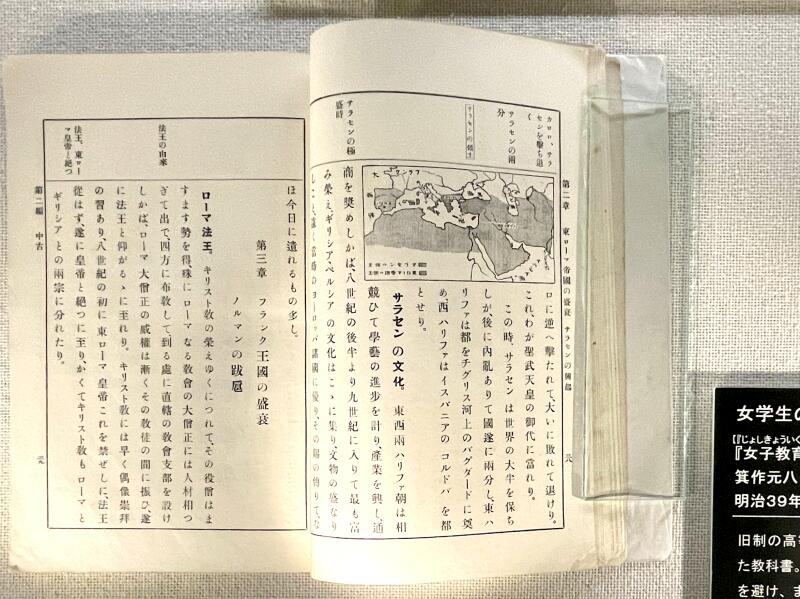 第二章　東ローマ帝國の盛衰　サラセンの興起
三八
カロロ、サラ
センを撃ち退
く
サラセンの兩
分
サラセンの領土
サラセンの極
盛時
ロに逆へ擊たれて、大いに敗れて退けり。
これ、わが聖武天皇の御代に當れり。
この時、サラセン は世界の大半を保ち
しが、後に內亂ありて國遂に兩分し、東ハ
リファは都をチグリス河上のバグダードに奠
め、西ハリファはイスパニアの コルドバ を都
とせり。
サラセン の文化。　東西兩ハリファ朝は相
競ひて學藝の進歩を計り、產業を興し、通
商を奬めしかば、八世紀の後半より九世紀に入りて最も富
み榮え、ギリシア、ペルシア の文化はこゝに集り、文物の盛なり
ほ今日に遺れるもの多し。
第三章　フランク王國の盛衰
ノルマンの跋扈
ローマ法王。　キリスト敎の榮えゆくにつれて、その役僧はま
すます勢を得、殊に ローマ なる敎會の大僧正には人材相つ
ぎて出で、四方に布敎して、到る處に直轄の敎會支部を設け
しかば、ローマ 大僧正の威權は漸くその敎徒の間に振ひ、遂
に法王と仰がるゝに至れり。キリスト敎には早く偶像崇拜
の習あり、八世紀の初に東ローマ 皇帝これを禁ぜしに、法王
從はず、遂に皇帝と絶つに至り、かくてキリスト敎も ローマと
ギリシア との兩宗に分れたり。
法王の由來
法王、東ロー
マ皇帝と絶つ
第二編　中古
三九
女学生の
『女子教育
箕作元八
明治39年
旧制の高等
た教科書。
を避け、ま